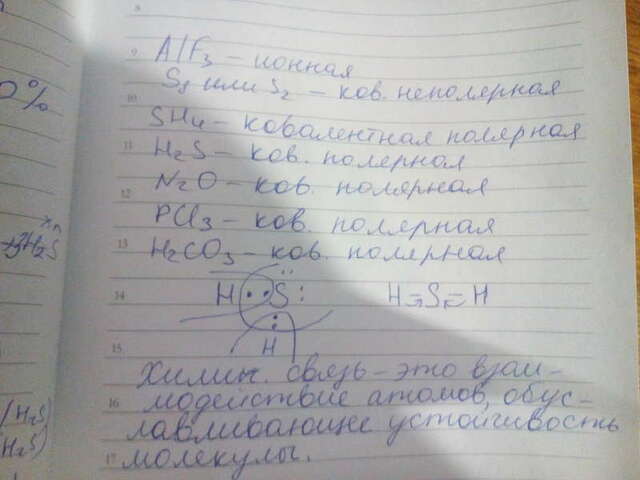 8
9 AlF3 – ионная
S8 или S2 – ков. неполярная
0%
10
SH4 – ковалентная полярная
11 H2S – ков. полярная
N2O – ков. полярная
12
PCl3 – ков. полярная
13 H2CO3 – ков. полярная
+3H2S
14 H : S : H → S ← H
H
15
Химич. связь – это взаи-
16 модействие атомов, обус-
лавливающее устойчивость
17 молекулы.
(H2S)
H2S)